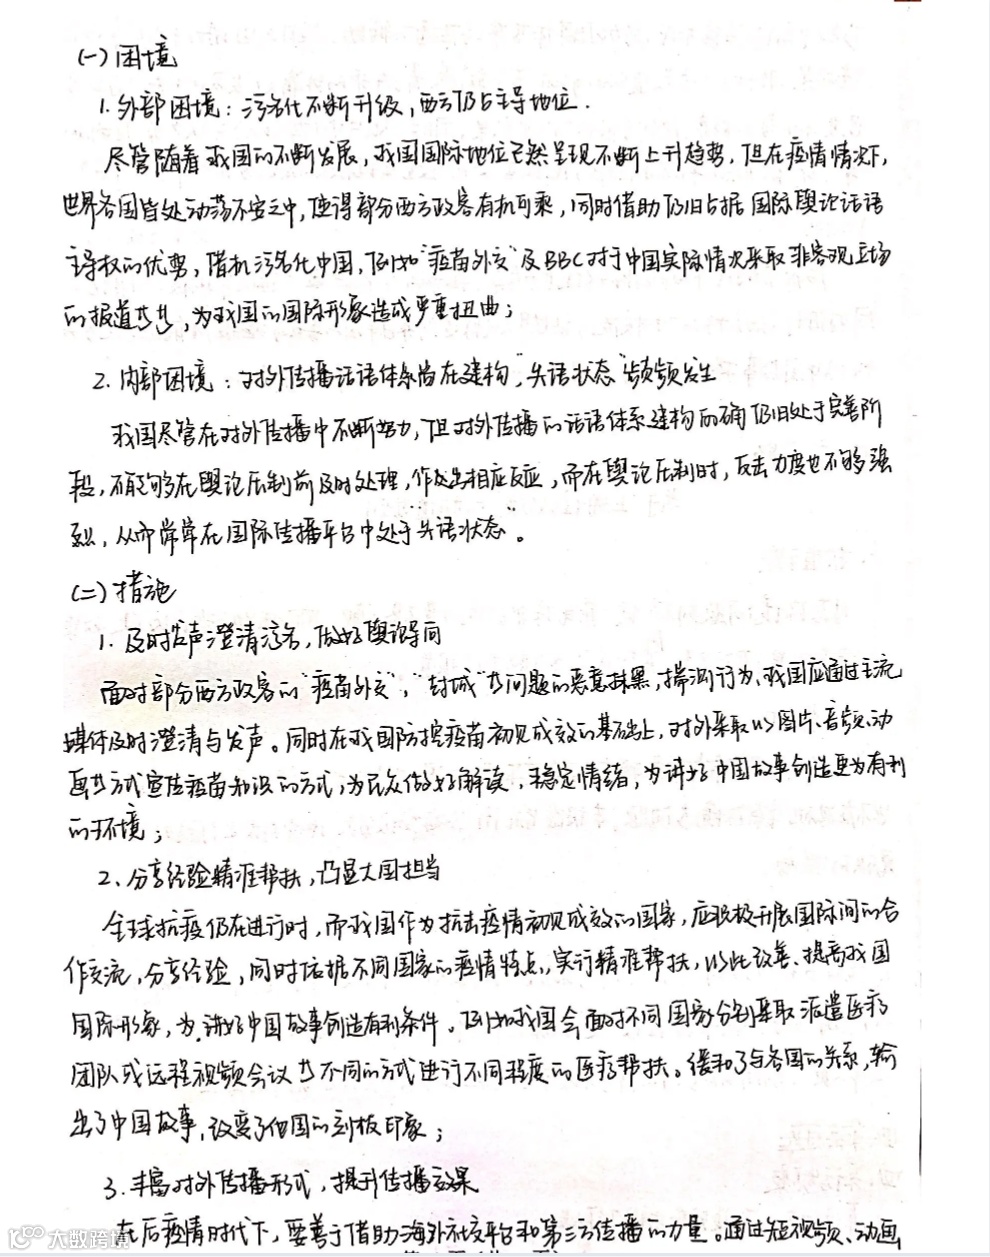 (一)困境
1.外部困境:污名化不断升级,西方仍占主导地位.
尽管随着我国的不断发展,我国国际地位已然呈现不断上升趋势,但在疫情情况下,
世界各国皆处动荡不安之中,使得部分西方政客有机可乘,同时借助仍旧占据国际舆论话语
主导权的优势,借机污名化中国,例如“疫苗外交”及BBC对于中国实际情况采取非客观立场
的报道等等,为我国的国际形象造成严重扭曲;
2.内部困境:对外传播话语体系尚在建构,“失语状态”频频发生
我国尽管在对外传播中不断努力,但对外传播的话语体系建构的确仍旧处于完善阶
段,不能够在舆论压制前及时处理,作出相应反应,而在舆论压制时,反击力度也不够强
烈,从而常常在国际传播平台中处于“失语状态”。
(二)措施
1.及时发声澄清污名,做好舆论导向
面对部分西方政客的“疫苗外交”,“封城”等问题的恶意抹黑,揣测行为、我国应通过主流
媒体及时澄清与发声。同时在我国防控疫苗初见成效的基础上,对外采取以图片、音频、动
画等方式宣传疫苗知识的方式,为民众做好解读,稳定情绪,为讲好中国故事创造更为有利
的环境;
2、分享经验精准帮扶,凸显大国担当
全球抗疫仍在进行时,而我国作为抗击疫情初见成效的国家,应积极开展国际间的合
作交流,分享经验,同时依据不同国家的疫情特点,实行精准帮扶,以此改善、提高我国
国际形象,为讲好中国故事创造有利条件。例如我国会面对不同国家分别采取派遣医疗
团队或远程视频会议等不同的方式进行不同程度的医疗帮扶。缓和了与各国的关系,输
出了中国故事,改变了他国的刻板印象;
3.丰富对外传播形式,提升传播效果
在后疫情时代下,要善于借助海外社交平台和第三方传播的力量。通过短视频、动画
大数跨境